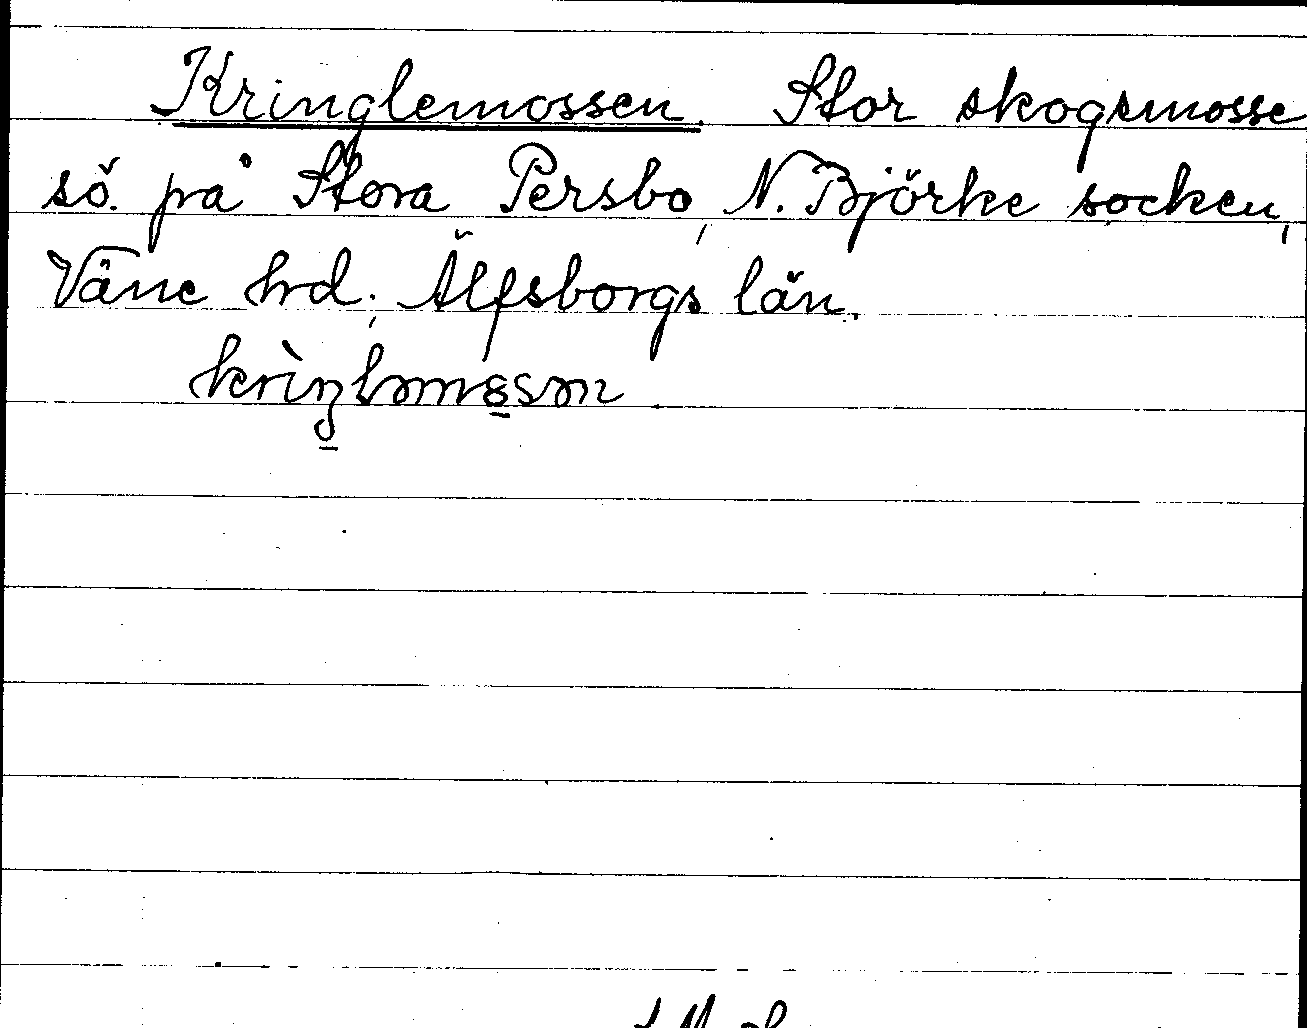 Kringlemossen. Stor skogsmosse
sö. på Stora Persbo, N. Björke socken,
Väne hrd, Älfsborgs län.